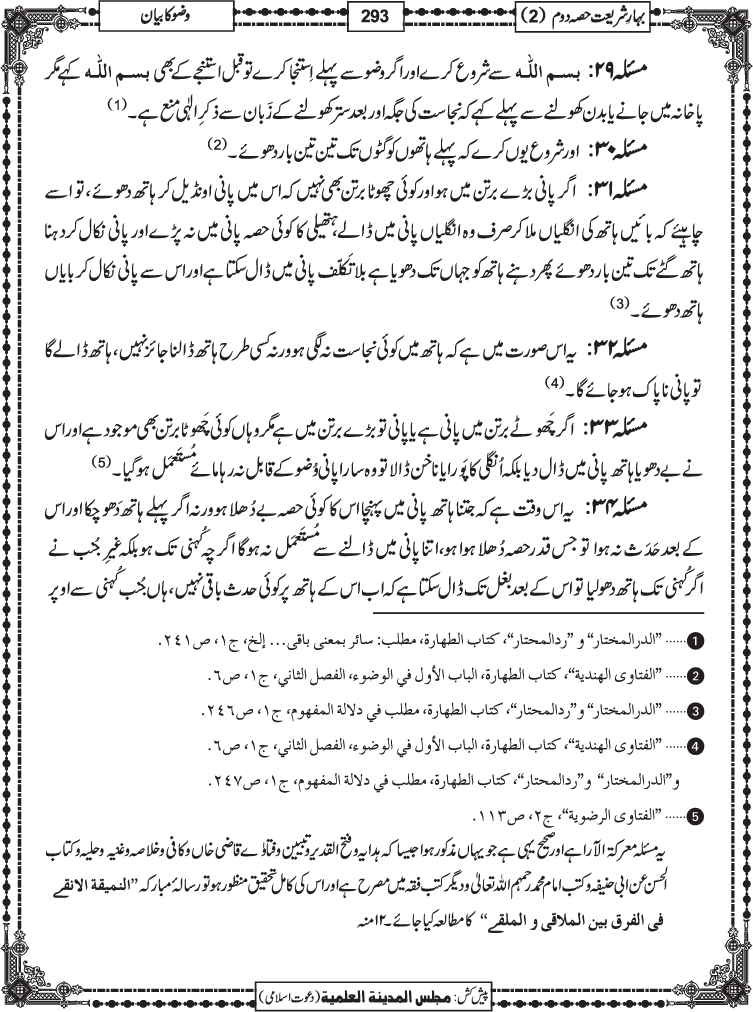 بہارِشریعت حصہ دوم (2)
293
وضو کا بیان
مسئلہ ۲۹: بسم اللّٰہ سے شروع کرے اور اگر وضو سے پہلے اِستنجا کرے تو قبل استنجے کے بھی بسم اللّٰہ کہے مگر
پاخانہ میں جانے یا بدن کھولنے سے پہلے کہے کہ نجاست کی جگہ اور بعد ستر کھولنے کے زَبان سے ذکرِ الٰہی منع ہے۔ (1)
مسئلہ ۳۰: اور شروع یوں کرے کہ پہلے ہاتھوں کو گٹوں تک تین تین بار دھوئے۔ (2)
مسئلہ ۳۱: اگر پانی بڑے برتن میں ہو اور کوئی چھوٹا برتن بھی نہیں کہ اس میں پانی اونڈیل کر ہاتھ دھوئے، تو اسے
چاہیئے کہ بائیں ہاتھ کی انگلیاں ملا کر صرف وہ انگلیاں پانی میں ڈالے، ہتھیلی کا کوئی حصہ پانی میں نہ پڑے اور پانی نکال کر دہنا
ہاتھ گٹے تک تین بار دھوئے پھر دہنے ہاتھ کو جہاں تک دھویا ہے بلا تکلّف پانی میں ڈال سکتا ہے اور اس سے پانی نکال کر بایاں
ہاتھ دھوئے۔ (3)
مسئلہ ۳۲: یہ اس صورت میں ہے کہ ہاتھ میں کوئی نجاست نہ لگی ہو ورنہ کسی طرح ہاتھ ڈالنا جائز نہیں، ہاتھ ڈالے گا
تو پانی ناپاک ہو جائے گا۔ (4)
مسئلہ ۳۳: اگر چھوٹے برتن میں پانی ہے یا پانی تو بڑے برتن میں ہے مگر وہاں کوئی چھوٹا برتن بھی موجود ہے اور اس
نے بے دھویا ہاتھ پانی میں ڈال دیا بلکہ اُنگلی کا پَورا یا ناخن ڈالا تو وہ سارا پانی وُضو کے قابل نہ رہا مائے مُستَعمَل ہوگیا۔ (5)
مسئلہ ۳۴: یہ اس وقت ہے کہ جتنا ہاتھ پانی میں پہنچا اس کا کوئی حصہ بے دُھلا ہو ورنہ اگر پہلے ہاتھ دھو چکا اور اس
کے بعد حَدَث نہ ہوا تو جس قدر حصہ دُھلا ہوا ہو، اتنا پانی میں ڈالنے سے مُستَعمَل نہ ہوگا اگرچہ کُہنی تک ہو بلکہ غیرِ جُنب نے
اگر کُہنی تک ہاتھ دھو لیا تو اس کے بعد بغل تک ڈال سکتا ہے کہ اب اس کے ہاتھ پر کوئی حدث باقی نہیں، ہاں جُنب کُہنی سے اوپر
1 ...... ”الدرالمختار“ و ”ردالمحتار“، کتاب الطهارة، مطلب: سائر بمعنی باقی... إلخ، ج۱، ص۲٤۱.
2 ...... ”الفتاوی الهندیة“، کتاب الطهارة، الباب الأول في الوضوء، الفصل الثاني، ج۱، ص٦.
3 ...... ”الدرالمختار“ و”ردالمحتار“، کتاب الطهارة، مطلب في دلالة المفهوم، ج۱، ص۲٤٦.
4 ...... ”الفتاوی الهندیة“، کتاب الطهارة، الباب الأول في الوضوء، الفصل الثاني، ج۱، ص٦.
و”الدرالمختار“ و”ردالمحتار“، کتاب الطهارة، مطلب في دلالة المفهوم، ج۱، ص۲٤۷.
5 ...... ”الفتاوی الرضویة“، ج۲، ص۱۱۳.
یہ مسئلہ معرکۃ الآرا ہے اور صحیح یہی ہے جو یہاں مذکور ہوا جیسا کہ ہدایہ و فتح القدیر و تبیین و فتاوٰے قاضی خاں و کافی و خلاصہ و غنیہ و حلیہ و کتاب
الحسن عن ابی حنیفہ و کتب امام محمد رحمہم اللہ تعالیٰ و دیگر کتب فقہ میں مصرح ہے اور اس کی کامل تحقیق منظور ہو تو رسالۂ مبارکہ ”النمیقة الانقے
فی الفرق بین الملاقی و الملقے“ کا مطالعہ کیا جائے۔ ۱۲ منہ
پیش کش: مجلس المدينة العلمية (دعوتِ اسلامی)